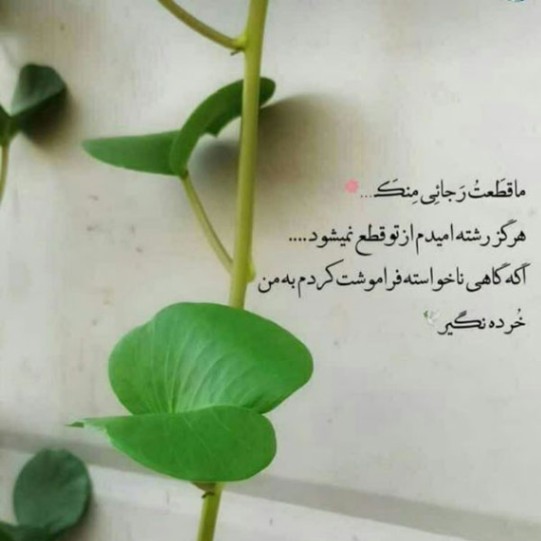 ما قَطَعتُ رَجائی مِنکَ...
هرگز رشته امیدم از تو قطع نمیشود....
آگه گاهی ناخواسته فراموشت کردم به من
خُرده نگیر